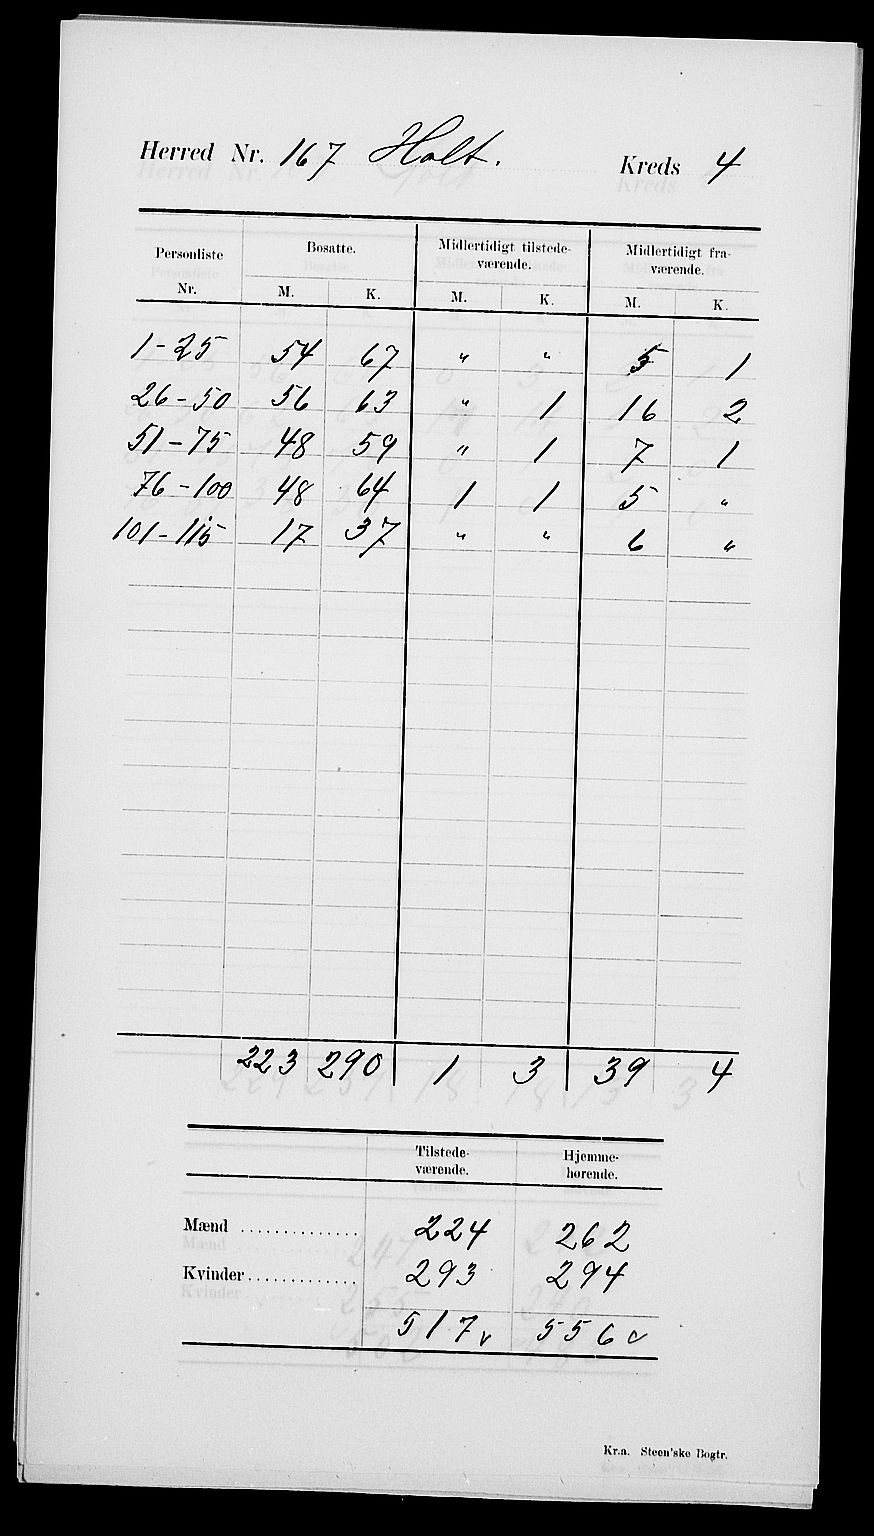 Herred Nr. 167 Holt. Kreds 4
Personliste Nr. Bosatte. Midlertidigt tilstede-værende. Midlertidigt fra-værende.
M. K. M. K. M. K.
1-25 54 67 " " 5 1
26-50 56 63 " 1 16 2
51-75 48 59 " 1 7 1
76-100 48 64 1 1 5 "
101-115 17 37 " " 6 "
223 290 1 3 39 4
Tilstede-værende. Hjemme-hørende.
Mænd 224 262
Kvinder 293 294
517 v 556 v
Kr.a. Steen'ske Bogtr.